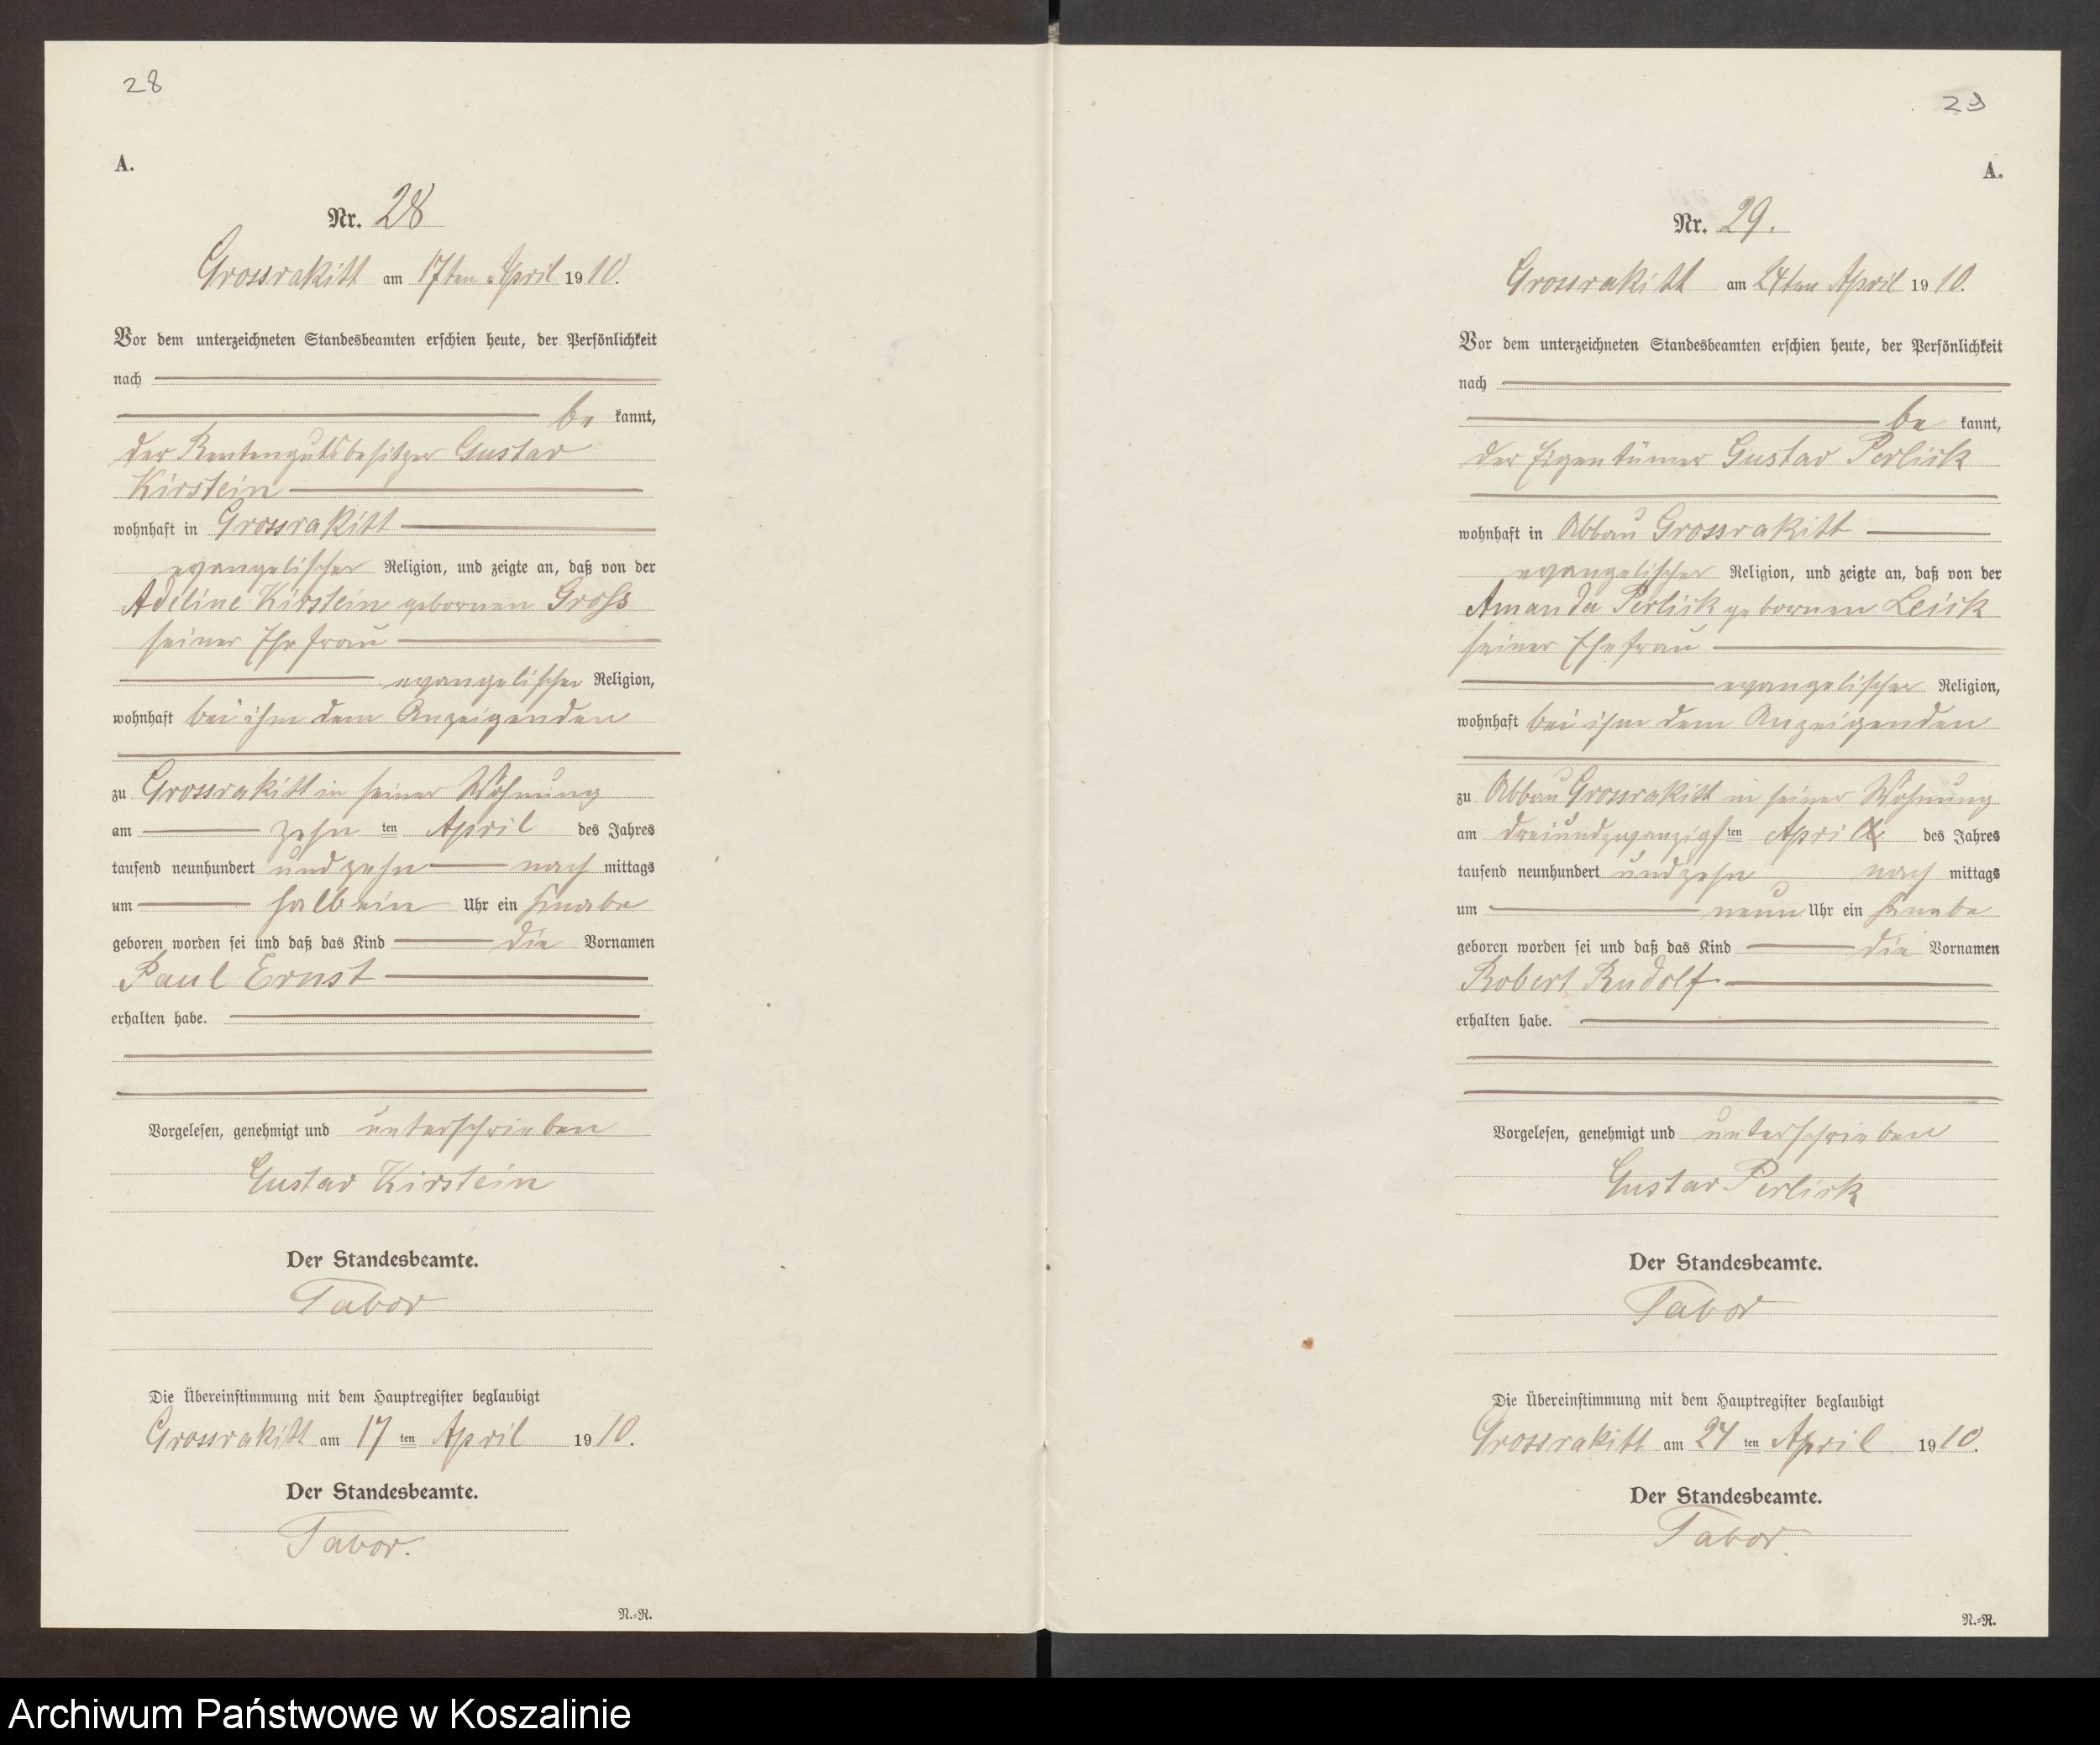 28
A.
Nr. 28
Grossrakitt am 17ten April 1910.
Vor dem unterzeichneten Standesbeamten erschien heute, der Persönlichkeit
nach
be kannt,
der Rentengutsbesitzer Gustav
Kirstein
wohnhaft in Grossrakitt
evangelischer Religion, und zeigte an, daß von der
Adeline Kirstein gebornen Gross
seiner Ehefrau
evangelischer Religion,
wohnhaft bei ihm dem Anzeigenden
zu Grossrakitt in seiner Wohnung
am zehn ten April des Jahres
tausend neunhundert und zehn nach mittags
um halb ein Uhr ein Knabe
geboren worden sei und daß das Kind die Vornamen
Paul Ernst
erhalten habe.
Vorgelesen, genehmigt und unterschrieben
Gustav Kirstein
Der Standesbeamte.
Tabor
Die Übereinstimmung mit dem Hauptregister beglaubigt
Grossrakitt am 17 ten April 1910.
Der Standesbeamte.
Tabor.
N.=R.
29
A.
Nr. 29.
Grossrakitt am 24ten April 1910.
Vor dem unterzeichneten Standesbeamten erschien heute, der Persönlichkeit
nach
be kannt,
der Eigentümer Gustav Perlick
wohnhaft in Abbau Grossrakitt
evangelischer Religion, und zeigte an, daß von der
Amanda Perlick gebornen Leick
seiner Ehefrau
evangelischer Religion,
wohnhaft bei ihm dem Anzeigenden
zu Abbau Grossrakitt in seiner Wohnung
am dreiundzwanzigs ten April des Jahres
tausend neunhundert und zehn nach mittags
um neun Uhr ein Knabe
geboren worden sei und daß das Kind die Vornamen
Robert Rudolf
erhalten habe.
Vorgelesen, genehmigt und unterschrieben
Gustav Perlick
Der Standesbeamte.
Tabor
Die Übereinstimmung mit dem Hauptregister beglaubigt
Grossrakitt am 24 ten April 1910.
Der Standesbeamte.
Tabor.
N.=R.
Archiwum Państwowe w Koszalinie